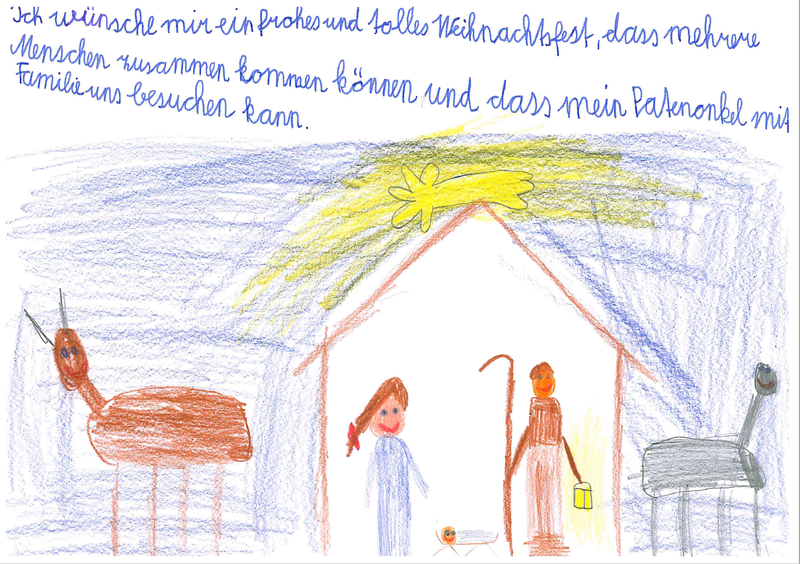 Ich wünsche mir ein frohes und tolles Weihnachtsfest, dass mehrere
Menschen zusammen kommen können und dass mein Patenonkel mit
Familie uns besuchen kann.